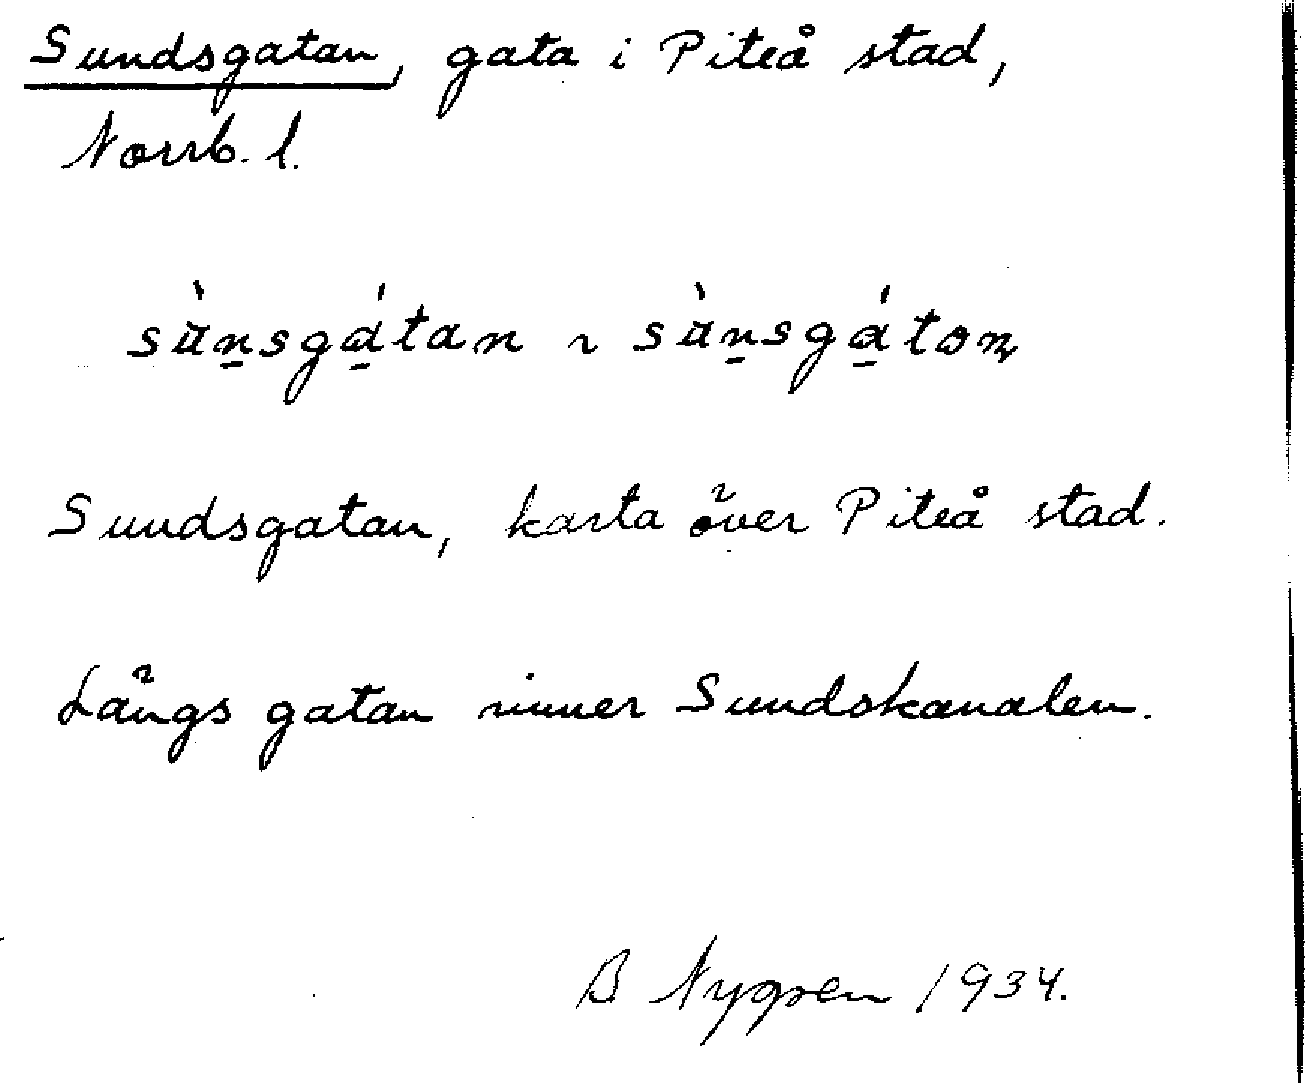 Sundsgatan, gata i Piteå stad,
Norrb. l.
sùn̠sgá̠tan ~ sùn̠sgá̠tɷn
Sundsgatan, karta över Piteå stad.
Längs gatan rinner Sundskanalen.
B Nygren 1934.